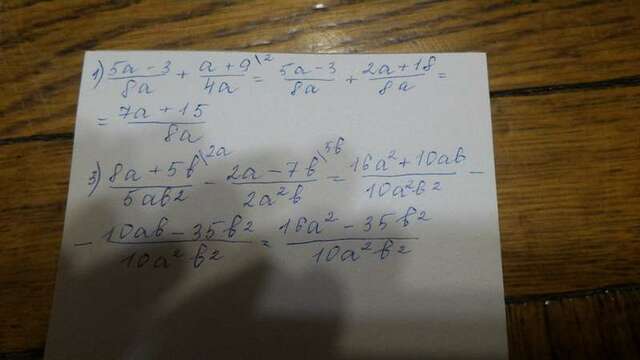 1) (5a - 3)/(8a) + (a + 9\2)/(4a) = (5a - 3)/(8a) + (2a + 18)/(8a) =
= (7a + 15)/(8a)
3) (8a + 5b\2a)/(5ab²) - (2a - 7b\5b)/(2a²b) = (16a² + 10ab)/(10a²b²) -
- (10ab - 35b²)/(10a²b²) = (16a² - 35b²)/(10a²b²)